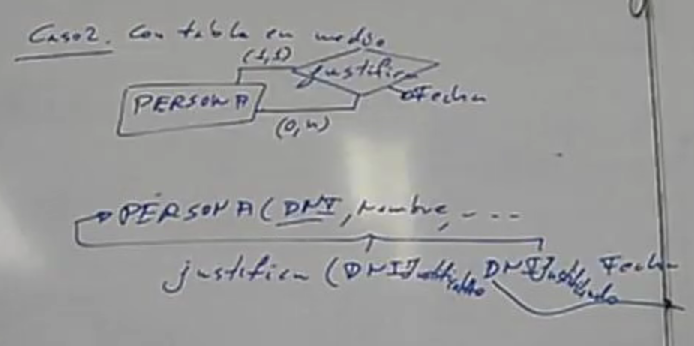 Caso 2. Con tabla en medio
(1,1)
justifica
PERSONA
Fecha
(0,n)
PERSONA (DNI, nombre, - - -
justifica (DNIJustificado DNIJustificando Fecha